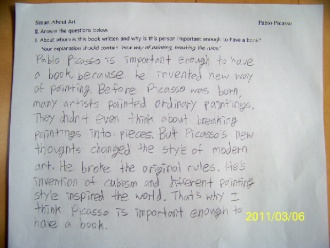 Smart About Art Pablo Picasso
B. Answer the questions below.
1. About whom is this book written and why is this person important enough to have a book?
Your explanation should contain 'new way of painting, breaking the rules'
Pablo Picasso is important enough to have
a book, because he invented new way
of painting. Before Picasso was born,
many artists painted ordinary paintings.
They didn't even think about breaking
paintings into pieces. But Picasso's new
thoughts changed the style of modern
art. He broke the original rules. He's
invention of cubism and different painting
style inspired the world. That's why I
think Picasso is important enough to
have a book.
2011/03/06